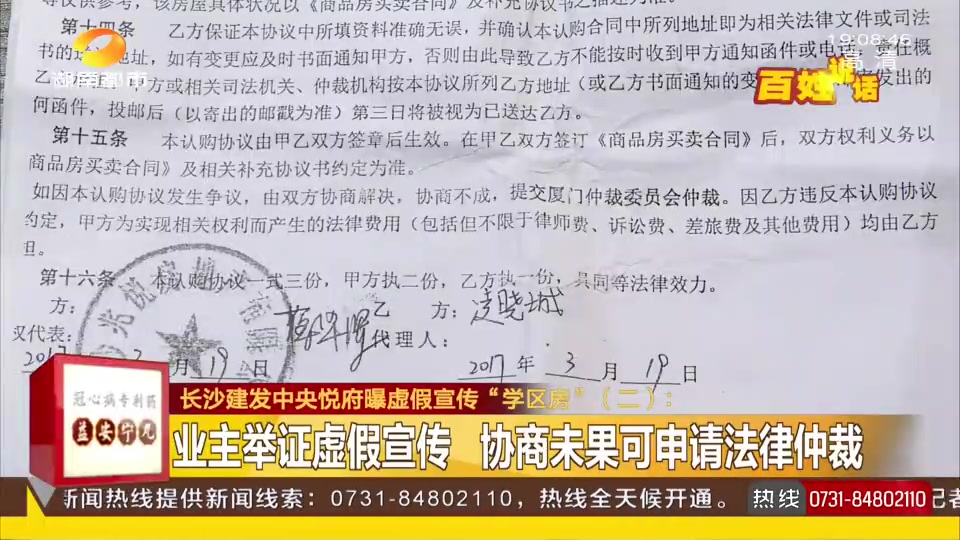 等仅供参考，该房屋具体状况以《商品房买卖合同》及补充协议书之描述为准。
第十四条 乙方保证本协议中所填资料准确无误，并确认本认购合同中所列地址即为相关法律文件或司法
书的送达地址，如有变更应及时书面通知甲方，否则由此导致乙方不能按时收到甲方通知函件或电话，责任概
方或相关司法机关、仲裁机构按本协议所列乙方地址（或乙方书面通知的变
发出的
何函件，投邮后（以寄出的邮戳为准）第三日将被视为已送达乙方。
第十五条 本认购协议由甲乙双方签章后生效。在甲乙双方签订《商品房买卖合同》后，双方权利义务以
商品房买卖合同》及相关补充协议书约定为准。
如因本认购协议发生争议，由双方协商解决，协商不成，提交厦门仲裁委员会仲裁。因乙方违反本认购协议
约定，甲方为实现相关权利而产生的法律费用（包括但不限于律师费、诉讼费、差旅费及其他费用）均由乙方
担。
第十六条 本认购协议一式三份，甲方执二份，乙方执一份，具同等法律效力。
方：
乙 方：
代表：
代理人：
2017
3月19日
2017年3月19日
湖南都市
19:08:46
高清
百姓说话
冠心病专利药
益安宁丸
长沙建发中央悦府曝虚假宣传“学区房”（二）：
业主举证虚假宣传 协商未果可申请法律仲裁
新闻热线提供新闻线索：0731-84802110，热线全天候开通。
热线 0731-84802110
记者